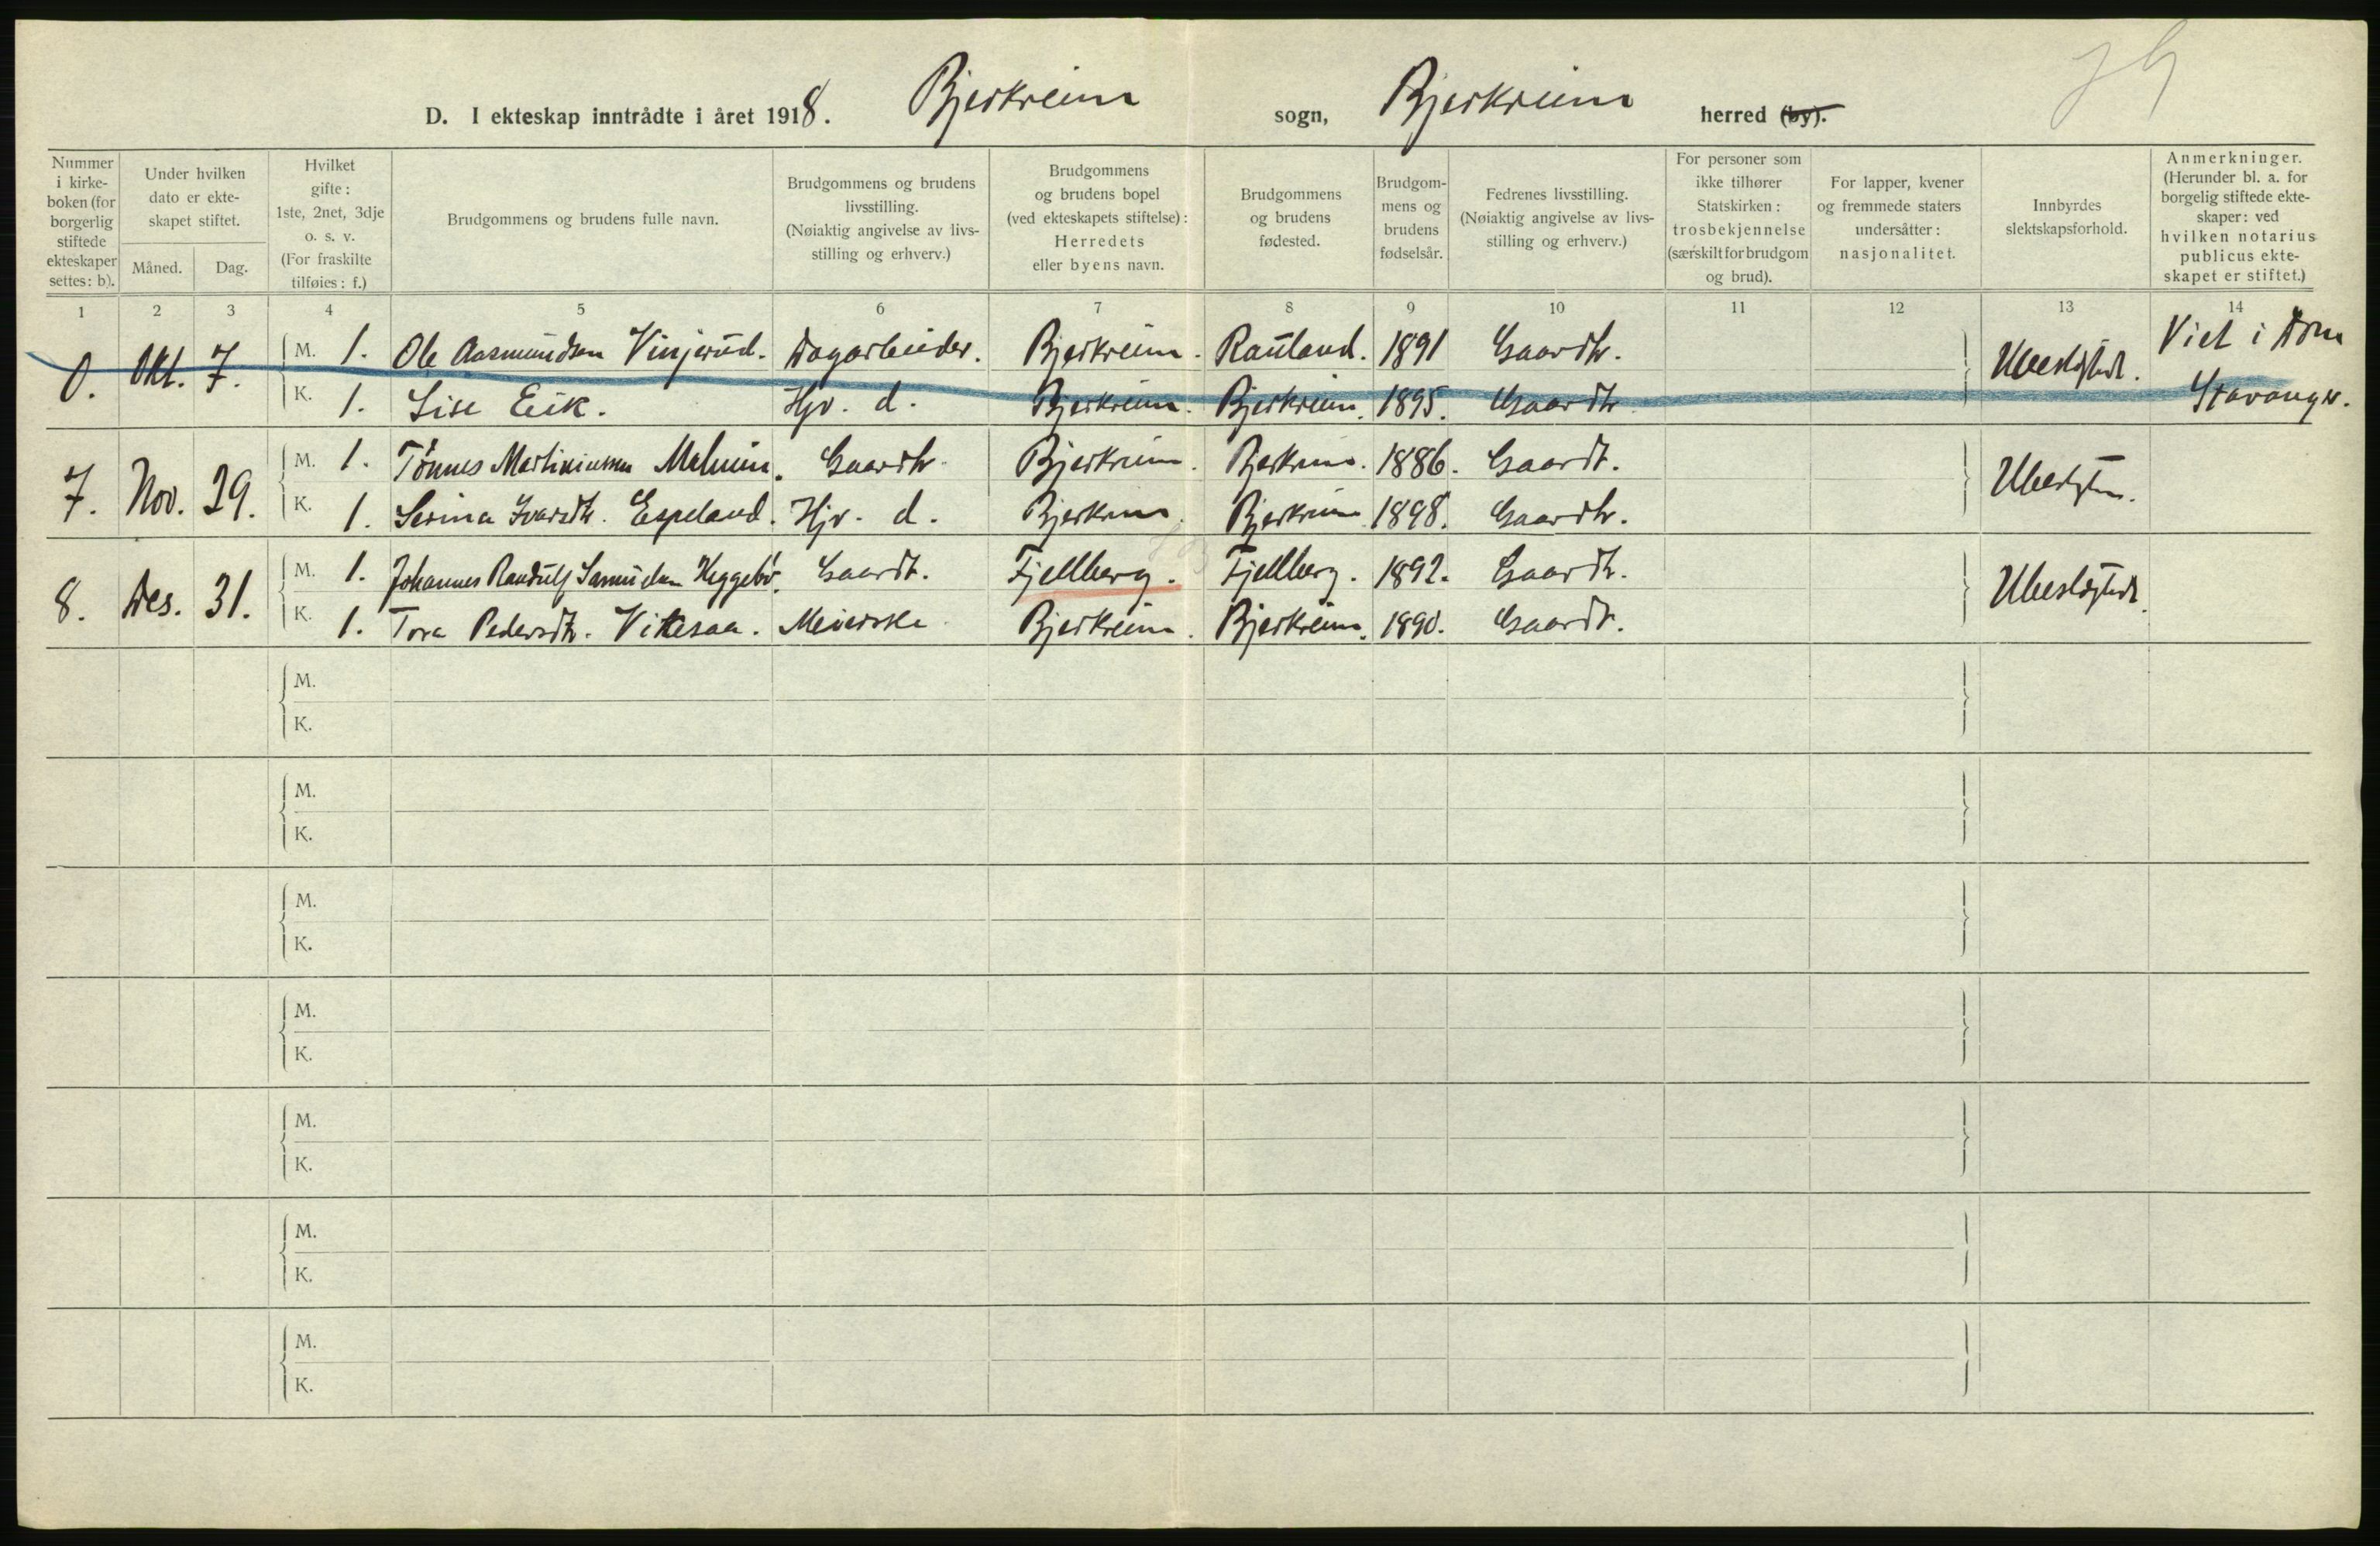 D. I ekteskap inntrådte i året 1918. Bjerkreim sogn, Bjerkreim herred (by).
Nummer i kirke-boken (for borgerlig stiftede ekteskaper settes: b).
Under hvilken dato er ekte-skapet stiftet.
Måned. Dag.
Hvilket gifte: 1ste, 2net, 3dje o. s. v. (For fraskilte tilføies: f.)
Brudgommens og brudens fulle navn.
Brudgommens og brudens livsstilling. (Nøiaktig angivelse av livs-stilling og erhverv.)
Brudgommens og brudens bopel (ved ekteskapets stiftelse): Herredets eller byens navn.
Brudgommens og brudens fødested.
Brudgom-mens og brudens fødselsår.
Fedrenes livsstilling. (Nøiaktig angivelse av livs-stilling og erhverv.)
For personer som ikke tilhører Statskirken: trosbekjennelse (særskilt for brudgom og brud).
For lapper, kvener og fremmede staters undersåtter: nasjonalitet.
Innbyrdes slektskapsforhold.
Anmerkninger. (Herunder bl. a. for borgelig stiftede ekte-skaper: ved hvilken notarius publicus ekte-skapet er stiftet.)
1 2 3 4 5 6 7 8 9 10 11 12 13 14
0. Okt. 7. M. 1. Ole Aasmundsen Vinjerud. Dagarbeider. Bjerkreim. Rauland. 1891 Gaardbr. Ubeslegtet. Viet i Dom
K. 1. Lise Eik. Hjv. d. Bjerkreim. Bjerkreim. 1895. Gaardbr. Stavanger.
7. Nov. 29. M. 1. Tønnes Martiniussen Malmin. Gaardbr. Bjerkreim. Bjerkreim. 1886. Gaardb.
K. 1. Serina Ivarsdtr. Espeland. Hjv. d. Bjerkreim. Bjerkreim 1898. Gaardbr.
8. Des. 31. M. 1. Johannes Randulf Samuelsen Heggebø. Gaardb. Fjellberg. Fjellberg. 1892. Gaardb. Ubeslegtet.
K. 1. Tora Pedersdtr. Vikesaa. Meierske Bjerkreim. Bjerkreim. 1890. Gaardb.
M.
K.
M.
K.
M.
K.
M.
K.
M.
K.
M.
K.
M.
K.